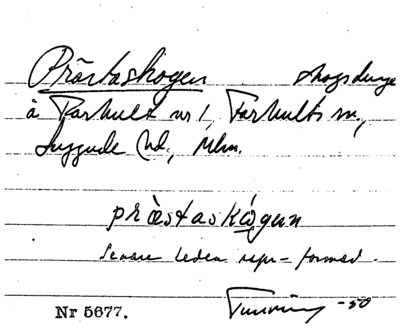 Prästaskogen skogsdunge
å Farhult nr 1, Farhults sn,
Luggude hd, Mlm.
prästaskógen
Senare leden rspr-formad.
-50
Nr 5677.